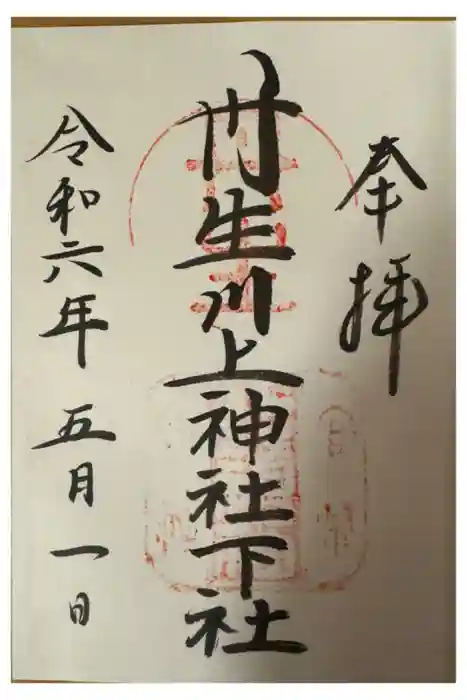 奉拝
丹生川上神社下社
令和六年 五月一日